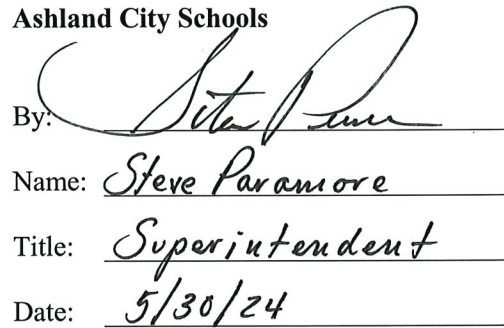 Ashland City Schools
By:
Name: Steve Paramore
Title: Superintendent
Date: 5/30/24